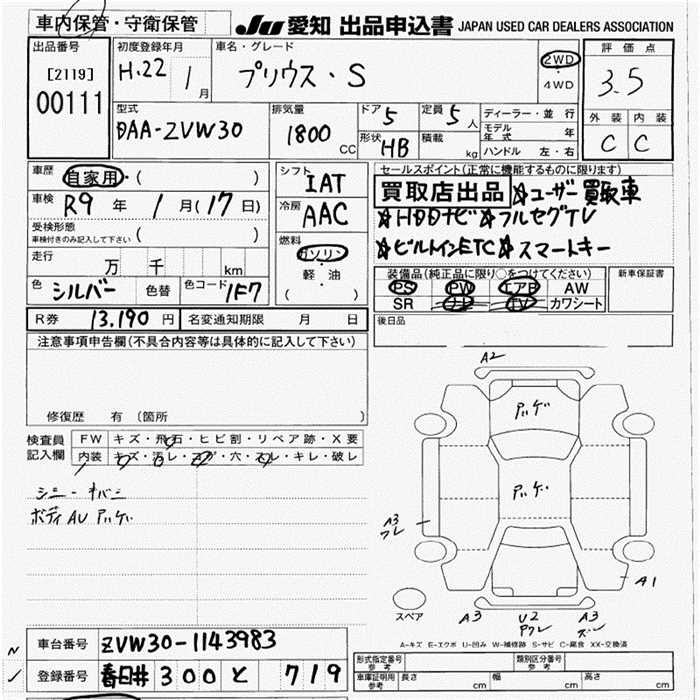 車内保管・守衛保管
JU 愛知 出品申込書 JAPAN USED CAR DEALERS ASSOCIATION
出品番号
[2119]
00111
初度登録年月
H.22 1月
車名・グレード
プリウス・S
2WD
・
4WD
評価点
3.5
外装 内装
C C
型式
DAA-ZVW30
排気量
1800 CC
ドア 5
形状 HB
定員 5人
積載 kg
ディーラー・並行
モデル年式 年
ハンドル 左・右
車歴 自家用・( )
車検 R9年 1月(17日)
受検形態
車検付きのみ記入して下さい ( )
走行 万 千 km
色 シルバー 色替 色コード 1F7
シフト
IAT
冷房
AAC
燃料
ガソリン
・
軽・油
( )
セールスポイント(正常に機能するものに限ります)
買取店出品 ☆ユーザー買取車
☆HDDナビ☆フルセグTV
☆ビルトインETC☆スマートキー
装備品(純正品に限り○をつけてください)
PS PW エアB AW
SR ナビ TV カワシート
新車保証書
後日品
R券 13.190円 名変通知期限 月 日
注意事項申告欄(不具合内容等は具体的に記入して下さい)
修復歴 有 (箇所 )
検査員記入欄
FW キズ・飛石・ヒビ割・リペア跡・X要
内装 キズ・汚レ・コゲ・穴・スレ・キレ・破レ
ボディAU アハゲ
A2
アハゲ
アハゲ
A3
A1
スペア
A3 U2 A3
A-キズ E-エクボ U-凹み W-補修跡 S-サビ C-腐食 XX-交換済
車台番号 ZVW30-1143983
登録番号 春日井 300 と 719
形式指定番号 参考
類別区分番号 参考
車庫証明用 参考 長さ cm 幅 cm 高さ cm